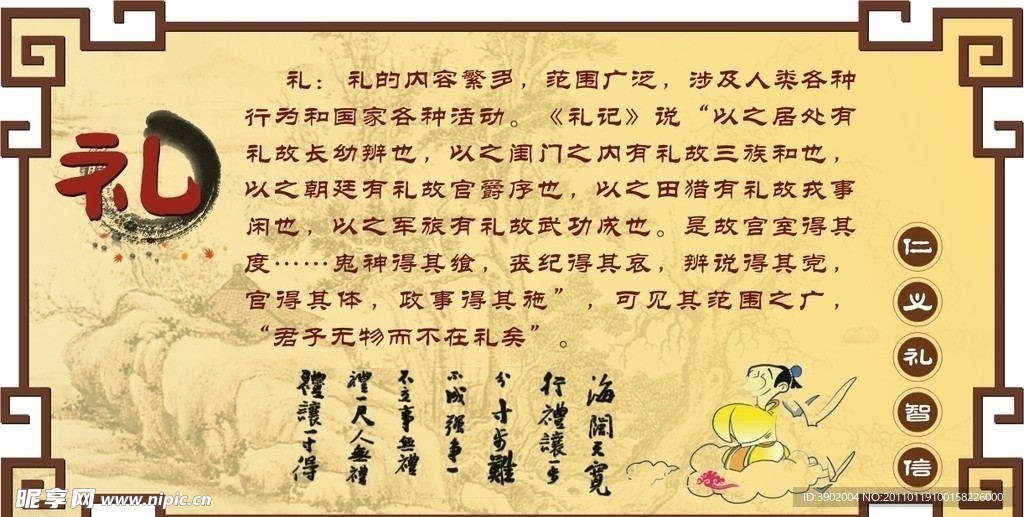 礼
礼：礼的内容繁多，范围广泛，涉及人类各种
行为和国家各种活动。《礼记》说“以之居处有
礼故长幼辨也，以之闺门之内有礼故三族和也，
以之朝廷有礼故官爵序也，以之田猎有礼故戎事
闲也，以之军旅有礼故武功成也。是故宫室得其
度……鬼神得其飨，丧纪得其哀，辨说得其党，
官得其体，政事得其施”，可见其范围之广，
“君子无物而不在礼矣”。
海阔天宽
行禮讓一步
分寸步難
不成强争一
不立事無禮
禮一尺人無禮
禮讓一寸得
仁
义
礼
智
信
昵享网 www.nipic.cn
ID:3902004 NO:20110119100158226000